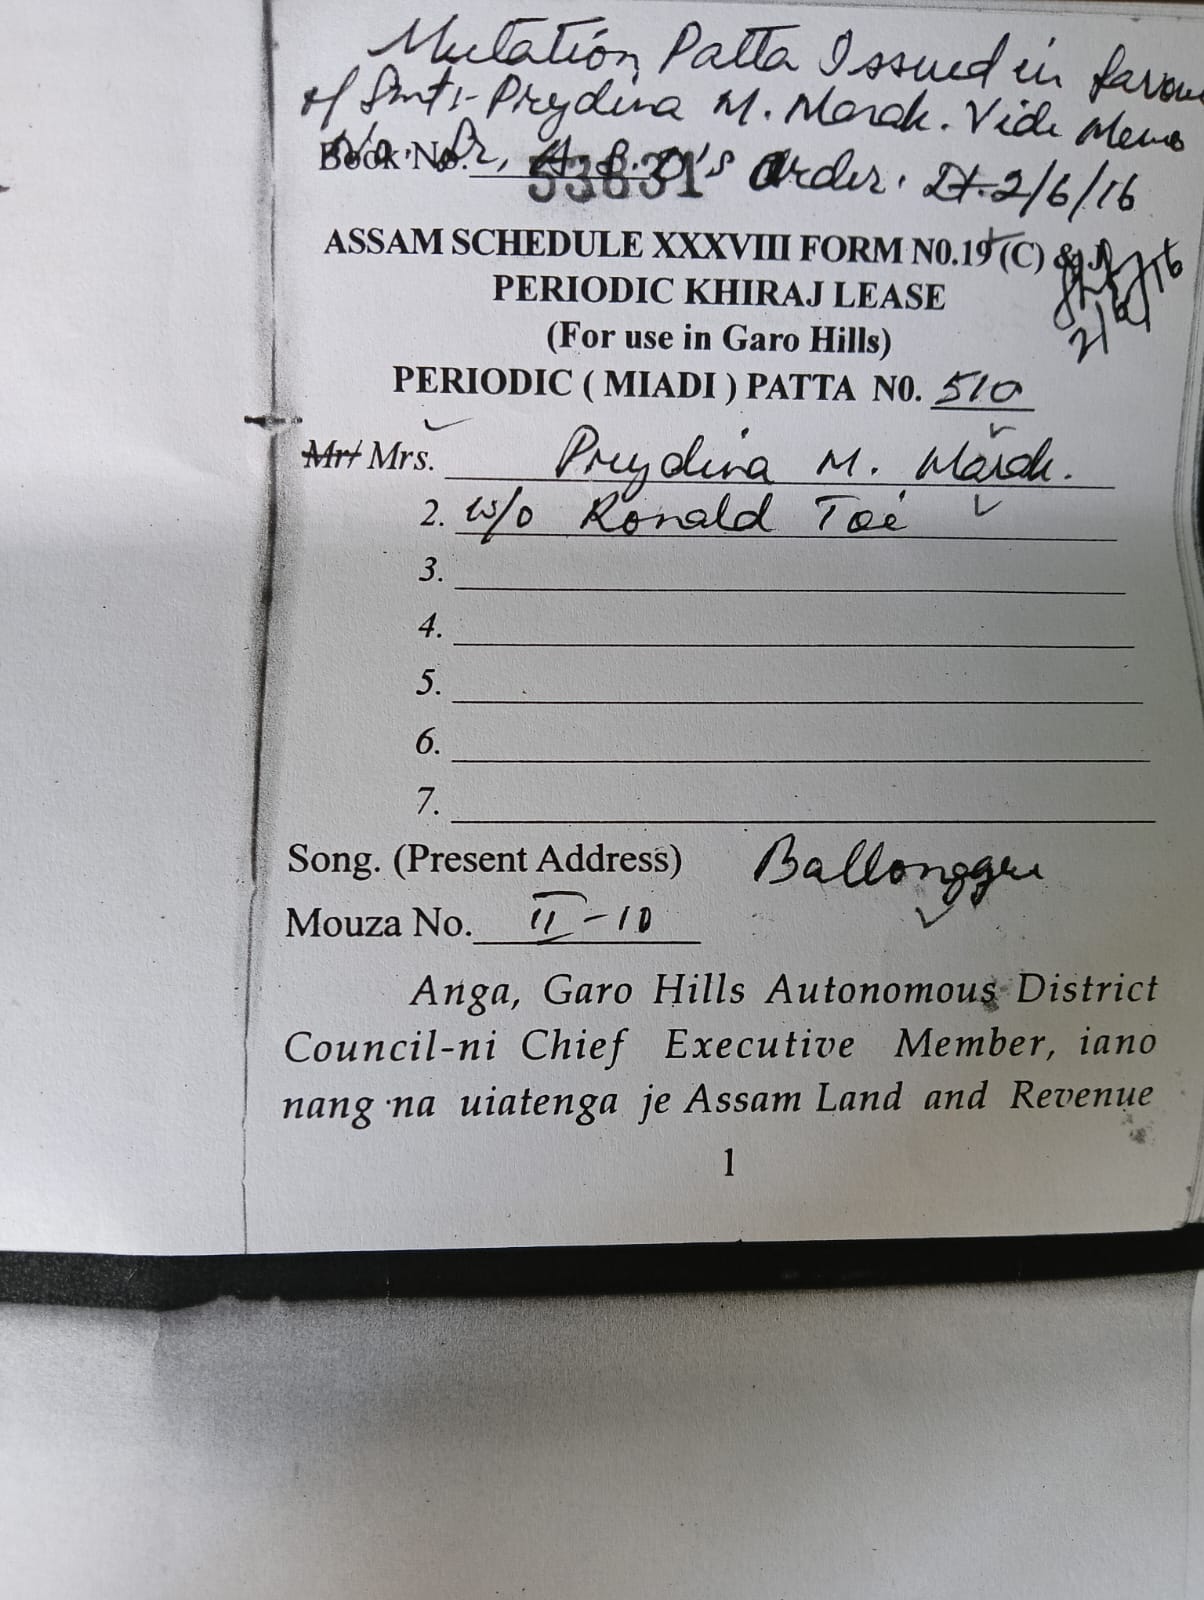 Mutation Patta Issued in favour
of Smti- Preydina M. Marak. Vide Memo
Book No. 53831 Order. Dt. 2/6/16
ASSAM SCHEDULE XXXVIII FORM N0.19 (C) &
PERIODIC KHIRAJ LEASE
(For use in Garo Hills)
2/6/16
PERIODIC ( MIADI ) PATTA N0. 510
Mr/ Mrs. Preydina M. Marak.
2. w/o Ronald Toi
3.
4.
5.
6.
7.
Song. (Present Address) Ballonggre
Mouza No. II-10
Anga, Garo Hills Autonomous District
Council-ni Chief Executive Member, iano
nang na uiatenga je Assam Land and Revenue
1